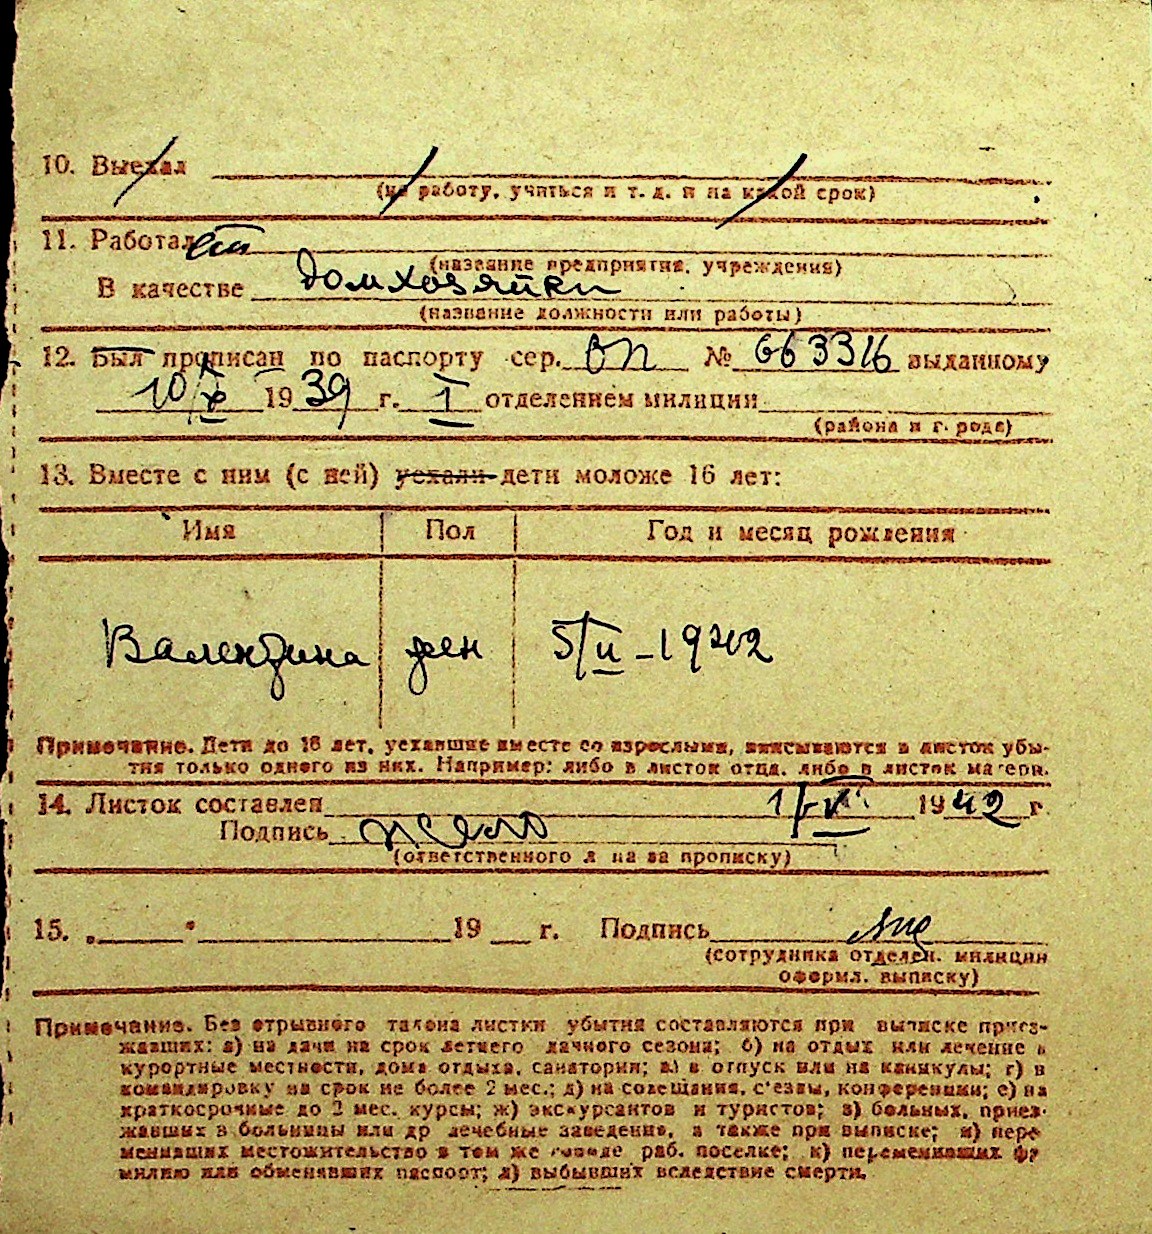 10. Выехал
(на работу, учиться и т. д. и на какой срок)
11. Работал
(название предприятия, учреждения)
В качестве домхозяйки
(название должности или работы)
12. Был прописан по паспорту сер. ОП № 663316 выданному
10/X 1939 г. I отделением милиции
(района и г. рода)
13. Вместе с ним (с ней) уехали дети моложе 16 лет:
Имя Пол Год и месяц рождения
Валентина жен 5/II-1942
Примечание. Дети до 16 лет, уехавшие вместе со взрослыми, вписываются в листок убы-
тия только одного из них. Например: либо в листок отца, либо в листок матери.
14. Листок составлен 1/ 1942 г.
Подпись
(ответственного л на за прописку)
15. „ " 19 г. Подпись
(сотрудника отделен. милиции
оформл. выписку)
Примечание. Без отрывного талона листки убытия составляются при выписке приез-
жавших: а) на дачи на срок летнего дачного сезона; б) на отдых или лечение в
курортные местности, дома отдыха, санатории; в) в отпуск или на каникулы; г) в
командировку на срок не более 2 мес.; д) на совещания, с'езды, конференции; е) на
краткосрочные до 2 мес. курсы; ж) экскурсантов и туристов; з) больных, приез-
жавших в больницы или др лечебные заведения, а также при выписке; и) пере
менивших местожительство в том же городе раб. поселке; к) переменивших фа
милию или обменявших паспорт; л) выбывших вследствие смерти.